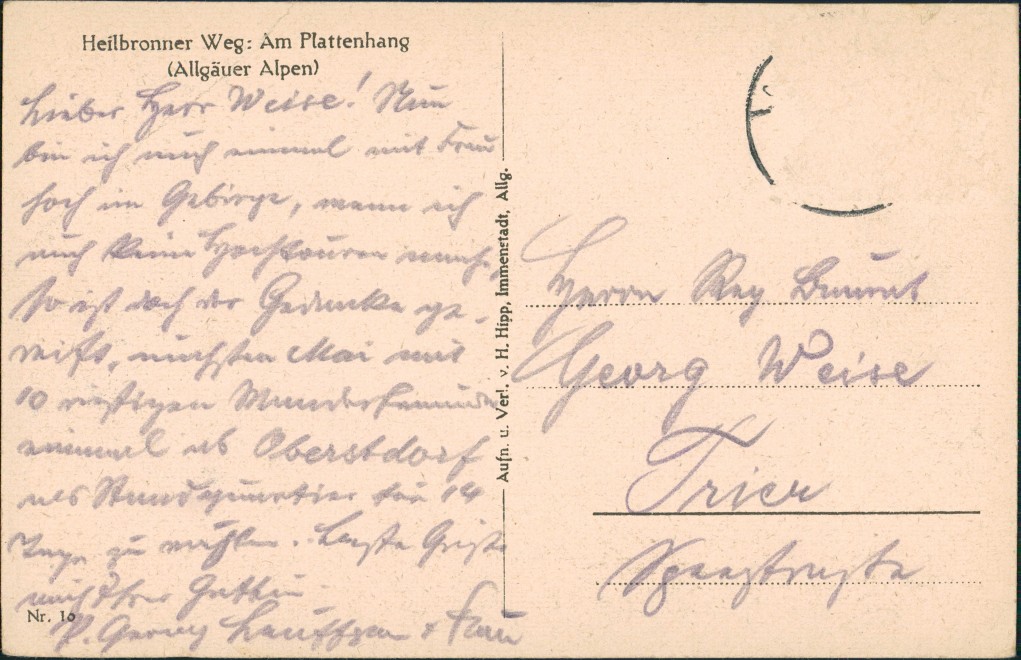 Heilbronner Weg: Am Plattenhang
(Allgäuer Alpen)
Lieber Herr Weise! Nun
bin ich noch einmal mit Frau
hoch im Gebirge, wenn ich
auch keine Hochtouren mache,
so ist doch der Gedanke ge-
reift, nächsten Mai mit
10 rüstigen Wanderfreunden
einmal ab Oberstdorf
als Standquartier für 14
Tage zu wählen. Beste Grüße
auch Ihrer Gattin
P. Georg & Frau
Nr. 16
Aufn. u. Verl. v. H. Hipp, Immenstadt, Allg.
Herrn Reg
Georg Weise
Trier